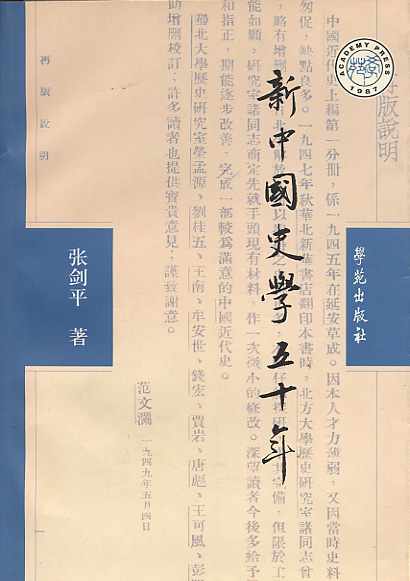 ACADEMY PRESS
1987
版説明
中國近代史上編第一分冊,係一九四五年在延安草成。因本人才力薄弱,又因當時史料
匆促,缺點良多。一九四七年秋華北新華書店翻印本書時,北方大學歷史研究室諸同志曾
略有增刪
備,但限於工
能如願。研究室諸同志商定先就手頭現有材料,作一次較小的修改。深望讀者今後多給予
和指正,期能逐步改善,完成一部較爲滿意的中國近代史。
北大學歷史研究室榮孟源、劉桂五、王南、牟安世、錢宏、賈岩、唐彪、王可風、彭
助增刪校訂;許多讀者也提供寶貴意見;謹致謝意。
范文瀾 一九四九年五月四日
再版説明
新中國史學五十年
學苑出版社
张剑平 著